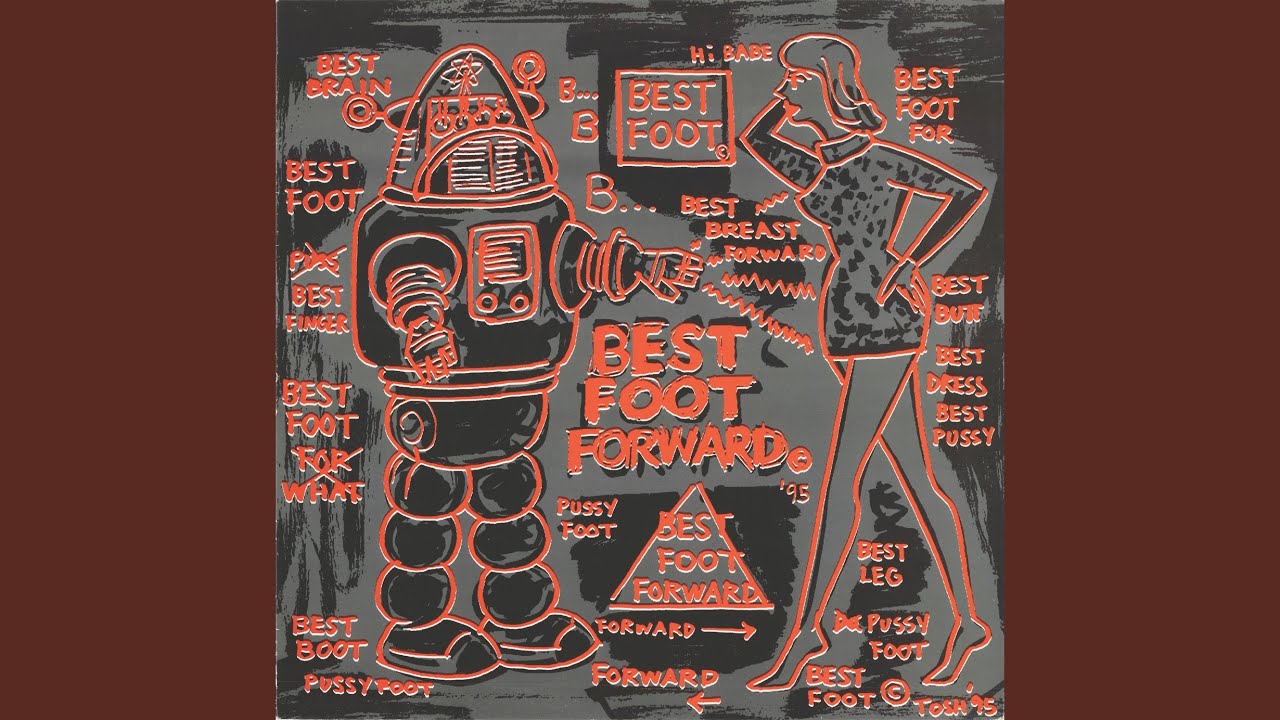 BEST
BRAIN
Hi BABE
B...
B
BEST
FOOT
©
BEST
FOOT
FOR
BEST
FOOT
B...
BEST
BREAST
FORWARD
BEST
FINGER
BEST
BUTT
BEST
FOOT
FORWARD ©
'95
BEST
DRESS
BEST
PUSSY
BEST
FOOT
FOR
WHAT
PUSSY
FOOT
BEST
FOOT
FORWARD
BEST
LEG
FORWARD
FORWARD
BEST
BOOT
PUSSYFOOT
PUSSY
FOOT
BEST
FOOT ©
TOSH '95